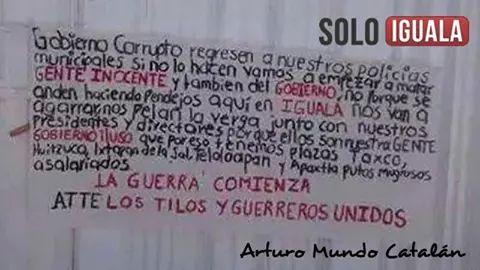 SOLO IGUALA
Gobierno Corrupto regresen a nuestros policias
municipales Si no lo hacen vamos a empezar a matar
GENTE INOCENTE y tambien del GOBIERNO, no Porque se
anden haciendo Pendejos aquí en IGUALA nos van a
agarrarnos Pelan la verga junto con nuestros
Presidentes y directores Porque ellos son nuestra GENTE
GOBIERNO iluso que Por eso tenemos Plazas Taxco,
Huitzuco, Ixtapan de la Sal, Teloloapan y Apaxtla Putos Mugrosos
asalariados.
LA GUERRA COMIENZA
ATTE LOS TILOS Y GUERREROS UNIDOS
Arturo Mundo Catalán